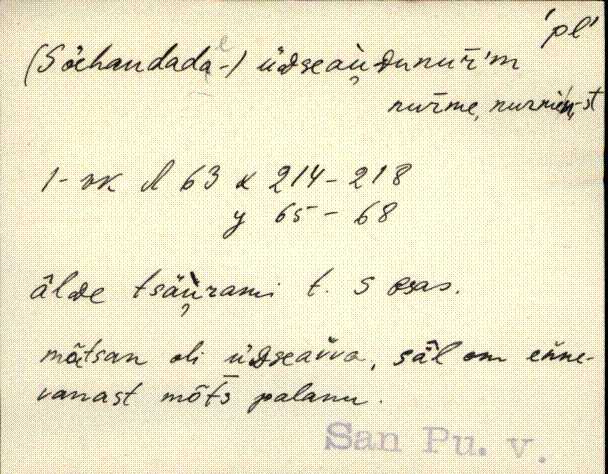 'pl'
(Söehandada-) üdseäu̯dunuŕm
nuŕme, nurme̮-st
1-vk N 63 x 214-218
y 65-68
älde tsäu̯rami t. S osas.
mõtsan oli üdseävvä, säl om enne-
vanast mõts palanu.
San Pu. v.